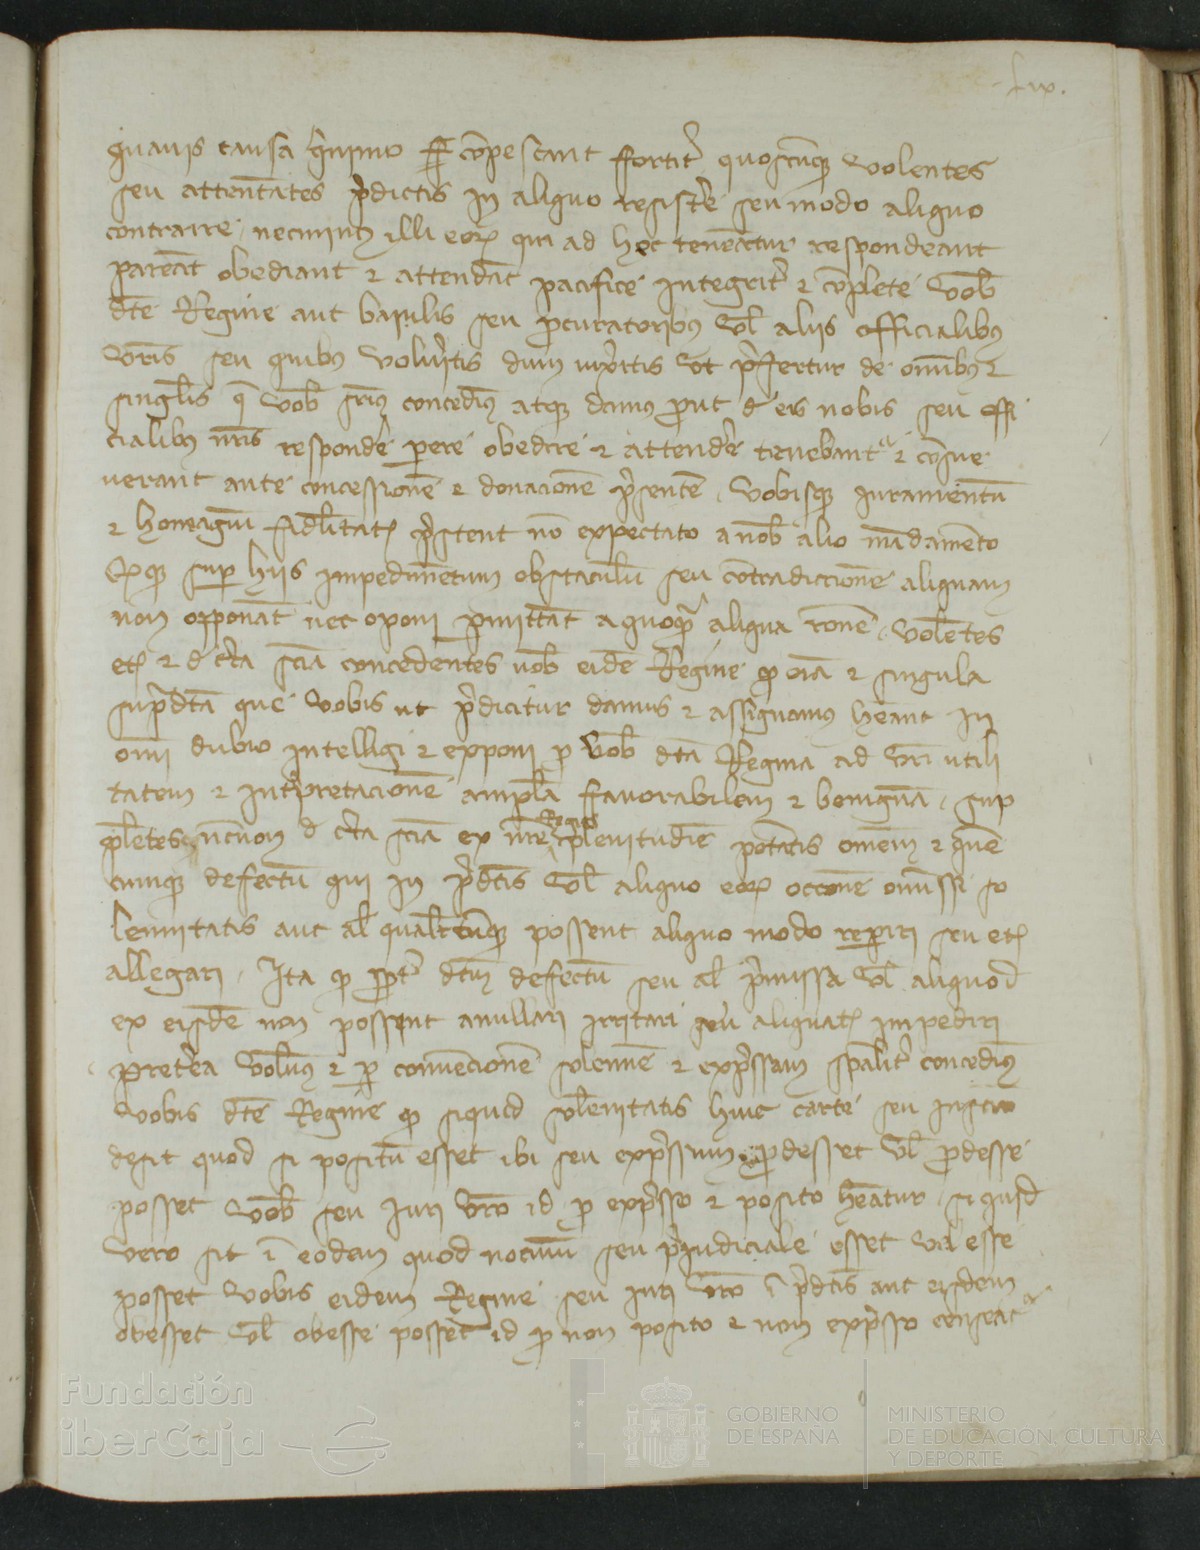 lix.
quavis causa qnimo compescant fortit quoscumq volentes
seu attentates pdictis in aliquo resistere seu modo aliquo
contraire necminus illi eor qui ad hec teneatur respondeant
pareat obediant & attendat pacifice integrit & complete vob
dte Regine aut baiulis seu pcuratoribus vl aliis officialibus
vris seu quibus voluitis dum vixitis ut pfertur de omibus &
singlis q vob sius concedimus atq damus put d eis nobis seu offi
cialibus nris responde perere obedire & attende tenebant & consue
verant ante concessione & donacione psente vobisq iuramentu
& homagiu fidlitatis pstent no expectato a nob alio mandamento
Quq sup hiis impedimetum obstaculu seu contradiccione aliquam
non opponat nec oponi pmittat a quoq aliqua rone volentes
etc & d cta scia concedentes vob eide Regine q oia & singula
supdta que vobis ut pdicitur damus & assignamus heant in
omi dubio intelligi & exponi p vob dta Regina ad vri utili
tatem & intpretacione ampla favorabilem & benigna sup
pletes necnon d cta scia ex nre Regie plenitudie potatis omem & quem
cumq defectu qui in pdtis vl aliquo eor occone omissi so
lennitatis aut al qualitcumq possent aliquo modo reperiri seu etc
allegari Ita q ppt dtm defectu seu al pmissa vl aliquod
ex eisde non possent anullari irritari seu aliquat impediri
preterea volumus & per convencione solenne & expssam spalit concedimus
vobis dte Regine q siquid solenitatis huic carte seu instro
desit quod si positu esset ibi seu expssum pdesset vl pdesse
posset vob seu iuri vro id p expsso & posito heatur si quid
vero sit i eodem quod nocivum seu piudiciale esset vel esse
posset vobis eidem Regine seu iuri vro i pdtis aut eisdem
obesset vl obesse posset id p non posito & non expsso censeat
Fundación
iberCaja
GOBIERNO
DE ESPAÑA
MINISTERIO
DE EDUCACIÓN, CULTURA
Y DEPORTE